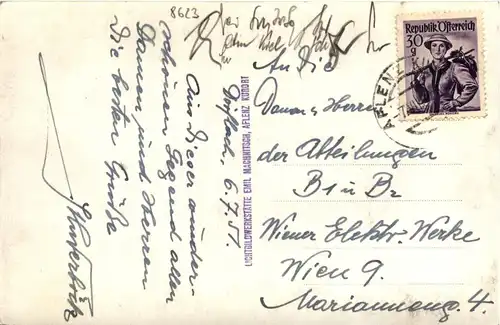 8623
Republik Österreich
30g
AFLENZ
An die
Damen u Herren
der Abteilungen
B1 u B2
Wiener Elektr. Werke
Wien 9.
Mariannengg. 4.
LICHTBILDWERKSTÄTTE EMIL MACHNITSCH, AFLENZ KURORT
6.7.51
Aus dieser wunder-
schönen Gegend allen
Damen und Herren
Die besten Grüße